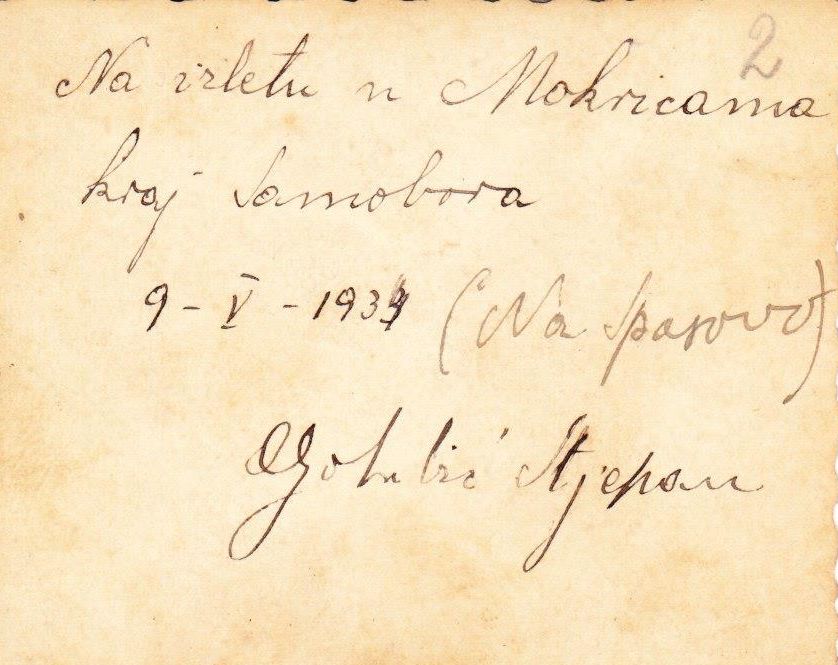 2
Na izletu u Mokricama
kraj Samobora
9 - V - 1934 (Na Spasovo)
Golubić Stjepan